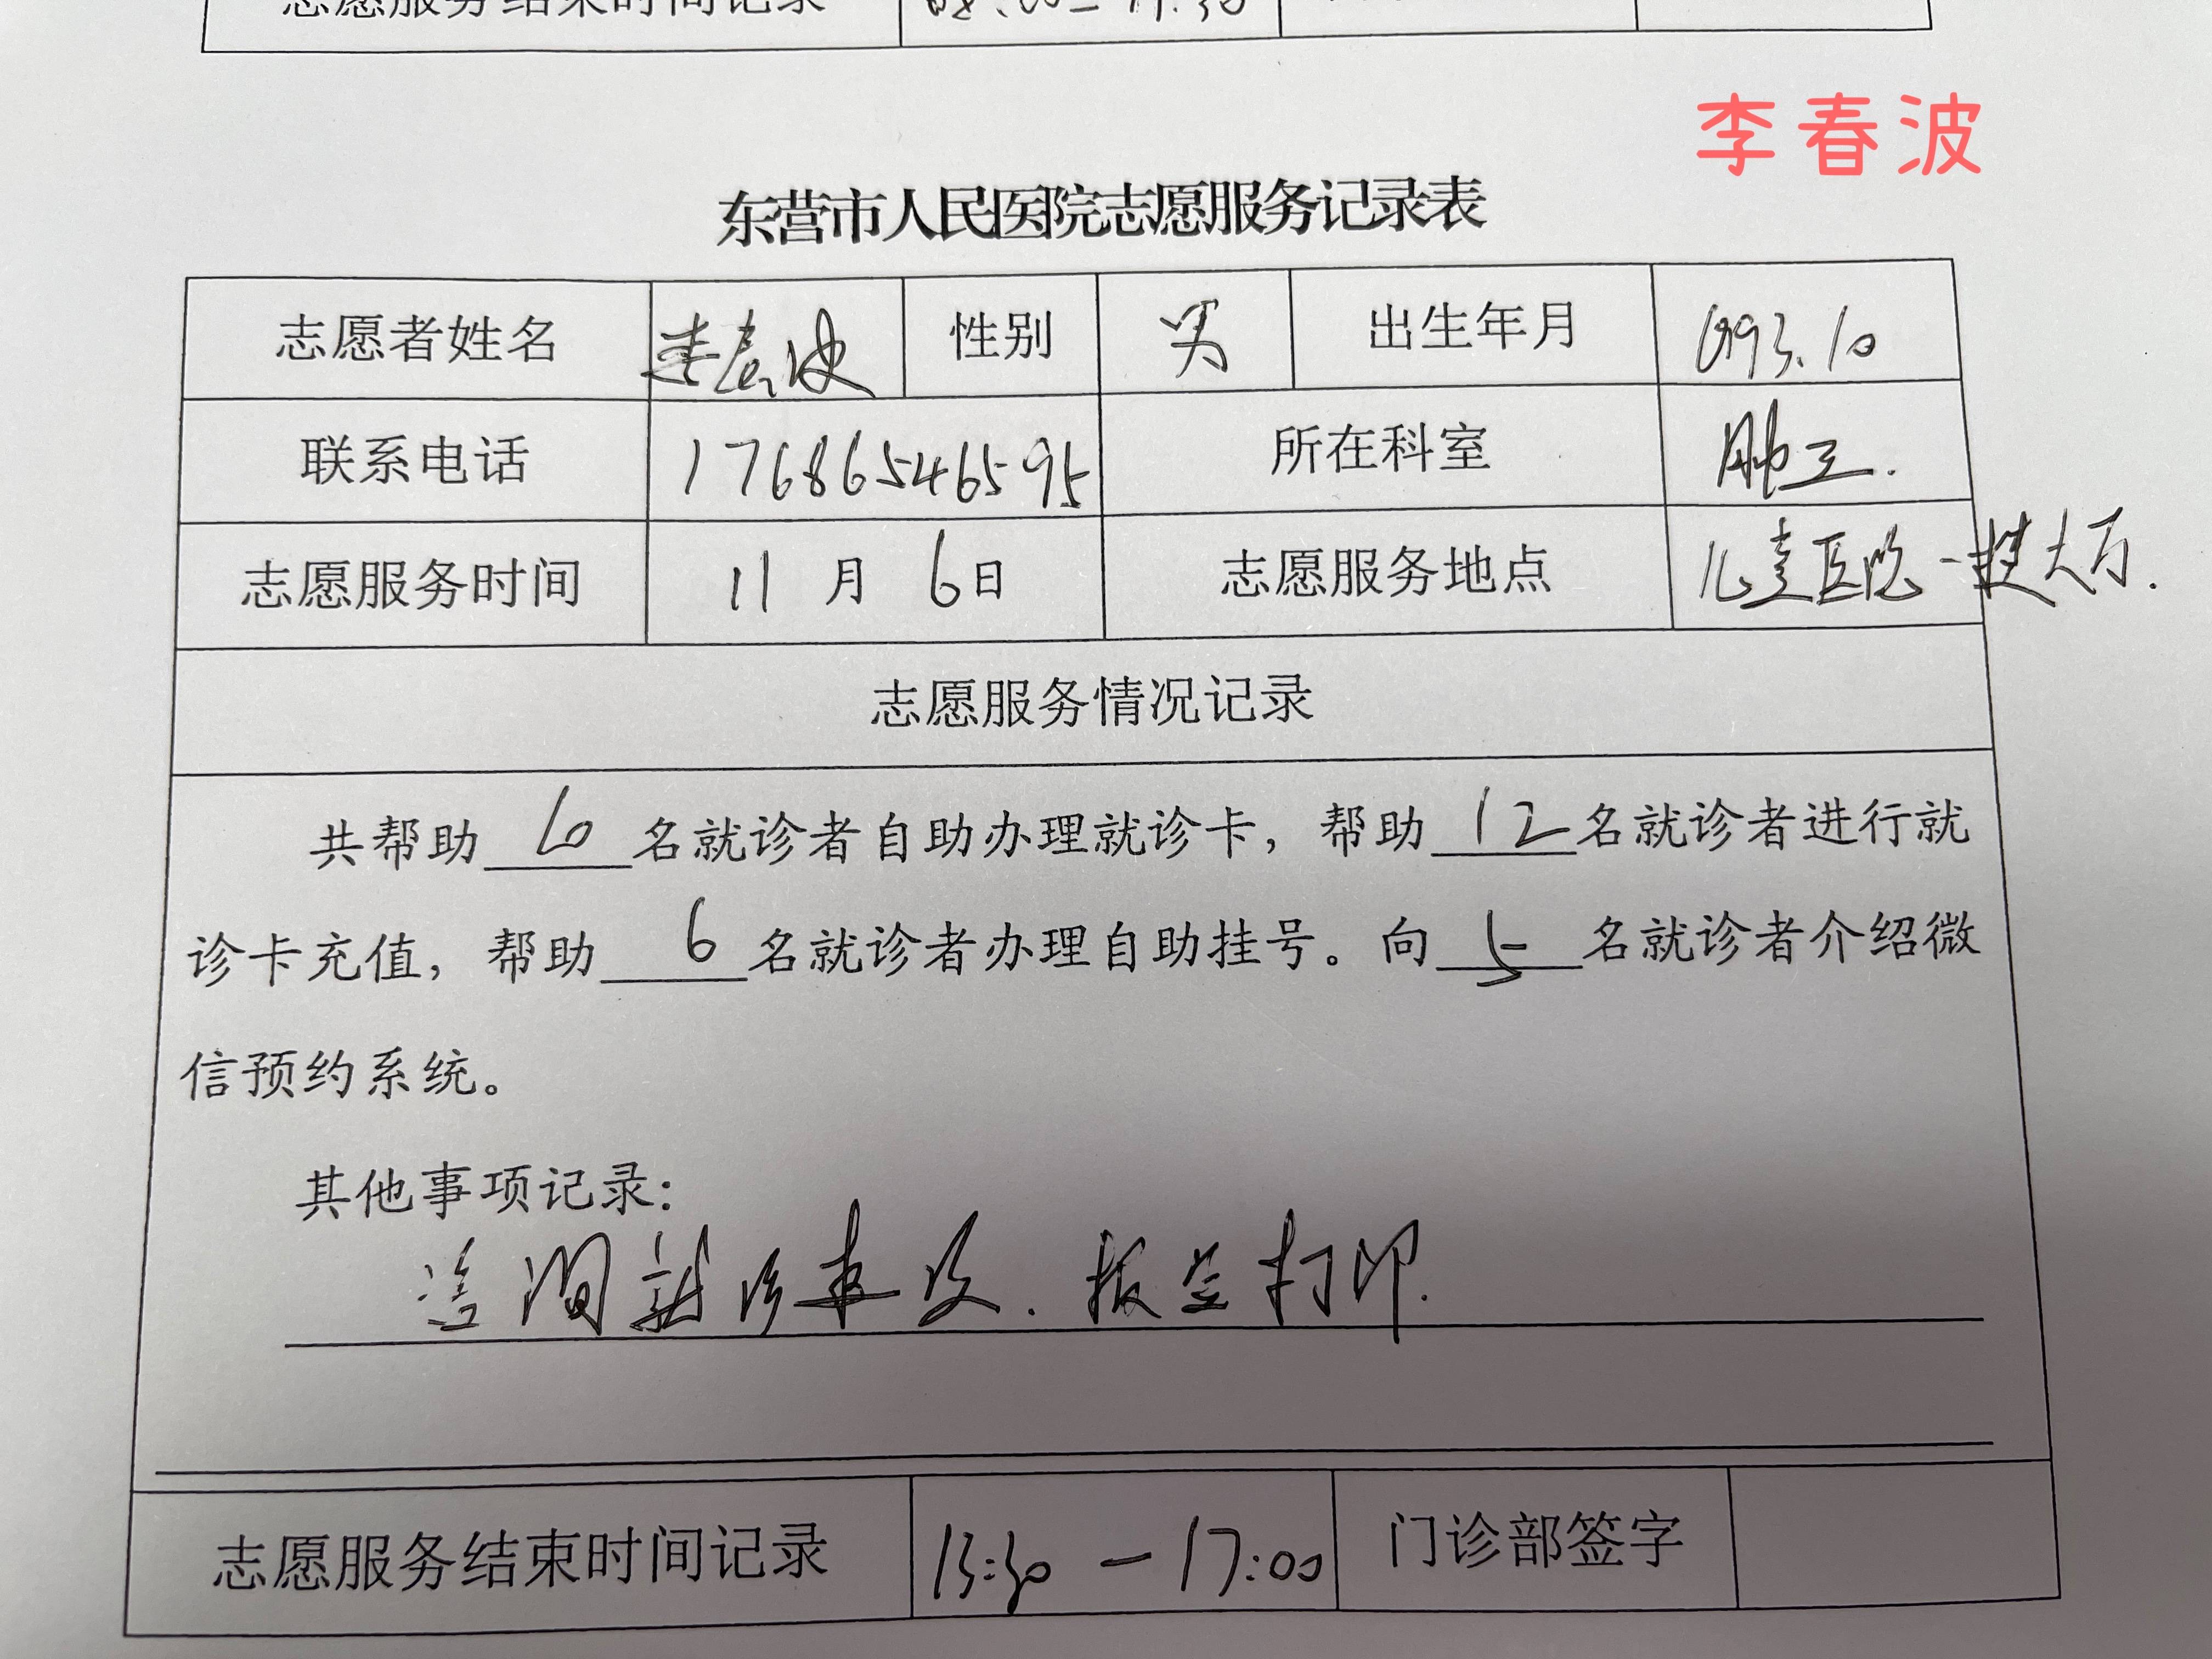 志愿服务结束时间记录 08:00-11:30
李春波
东营市人民医院志愿服务记录表
志愿者姓名 李春波 性别 男 出生年月 1993.10
联系电话 17686546595 所在科室
志愿服务时间 11月6日 志愿服务地点 儿童医院一楼大厅.
志愿服务情况记录
共帮助 10 名就诊者自助办理就诊卡，帮助 12 名就诊者进行就
诊卡充值，帮助 6 名就诊者办理自助挂号。向 5 名就诊者介绍微
信预约系统。
其他事项记录：
咨询就诊事宜. 报告打印.
志愿服务结束时间记录 13:30-17:00 门诊部签字